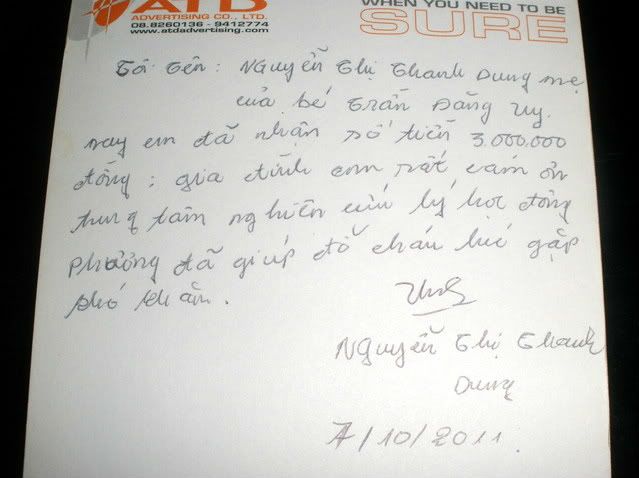 ATD
ADVERTISING CO., LTD.
08.8260136 - 9412774
www.atdadvertising.com
WHEN YOU NEED TO BE
SURE
Tôi Tên : Nguyễn Thị Thanh Dung mẹ
của bé Trần Đăng Uy.
nay em đã nhận số tiền 3.000.000
đồng ; gia đình em rất cám ơn
trung tâm nghiên cứu lý học đông
phương đã giúp đỡ cháu lúc gặp
khó khăn.
Nguyễn Thị Thanh
Dung
7/10/2011.